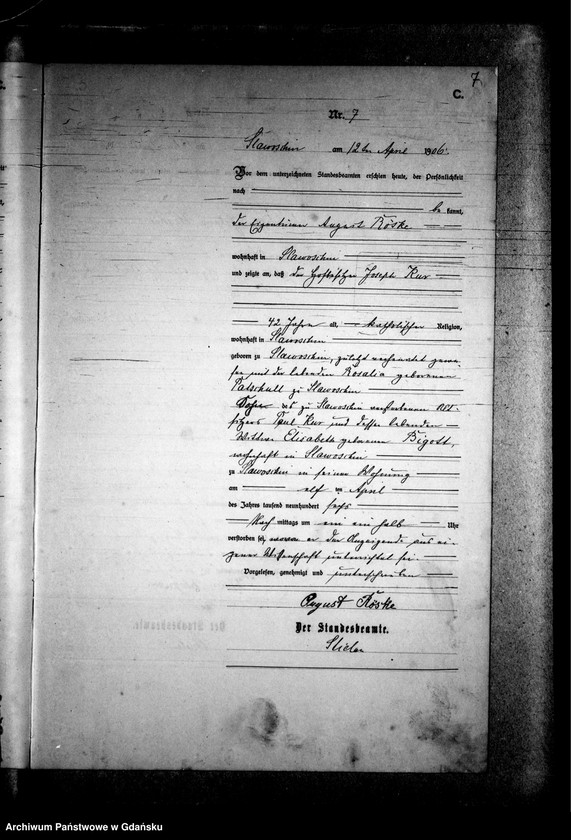 7
C.
Nr. 7
Slawoschin am 12ten April 1906.
Vor dem unterzeichneten Standesbeamten erschien heute, der Persönlichkeit
nach
be kannt,
der Eigentümer August Röske
wohnhaft in Slawoschin
und zeigte an, daß der Joseph Kur
42 Jahre alt, katholischer Religion,
wohnhaft in Slawoschin
geboren zu Slawoschin, zuletzt verheiratet gewe-
sen mit der lebenden Rosalia geborenen
zu Slawoschin
Sohn des zu Slawoschin verstorbenen
Paul Kur und dessen lebenden
Witwe Elisabeth geborene Bigott,
wohnhaft in Slawoschin
zu Slawoschin in seiner Wohnung
am elf ten April
des Jahres tausend neunhundert sechs
Nach mittags um ein ein halb Uhr
verstorben sei, wovon er der Anzeigende aus ei-
gener Wissenschaft unterrichtet sei.
Vorgelesen, genehmigt und unterschrieben
August Röske
Der Standesbeamte.
Archiwum Państwowe w Gdańsku